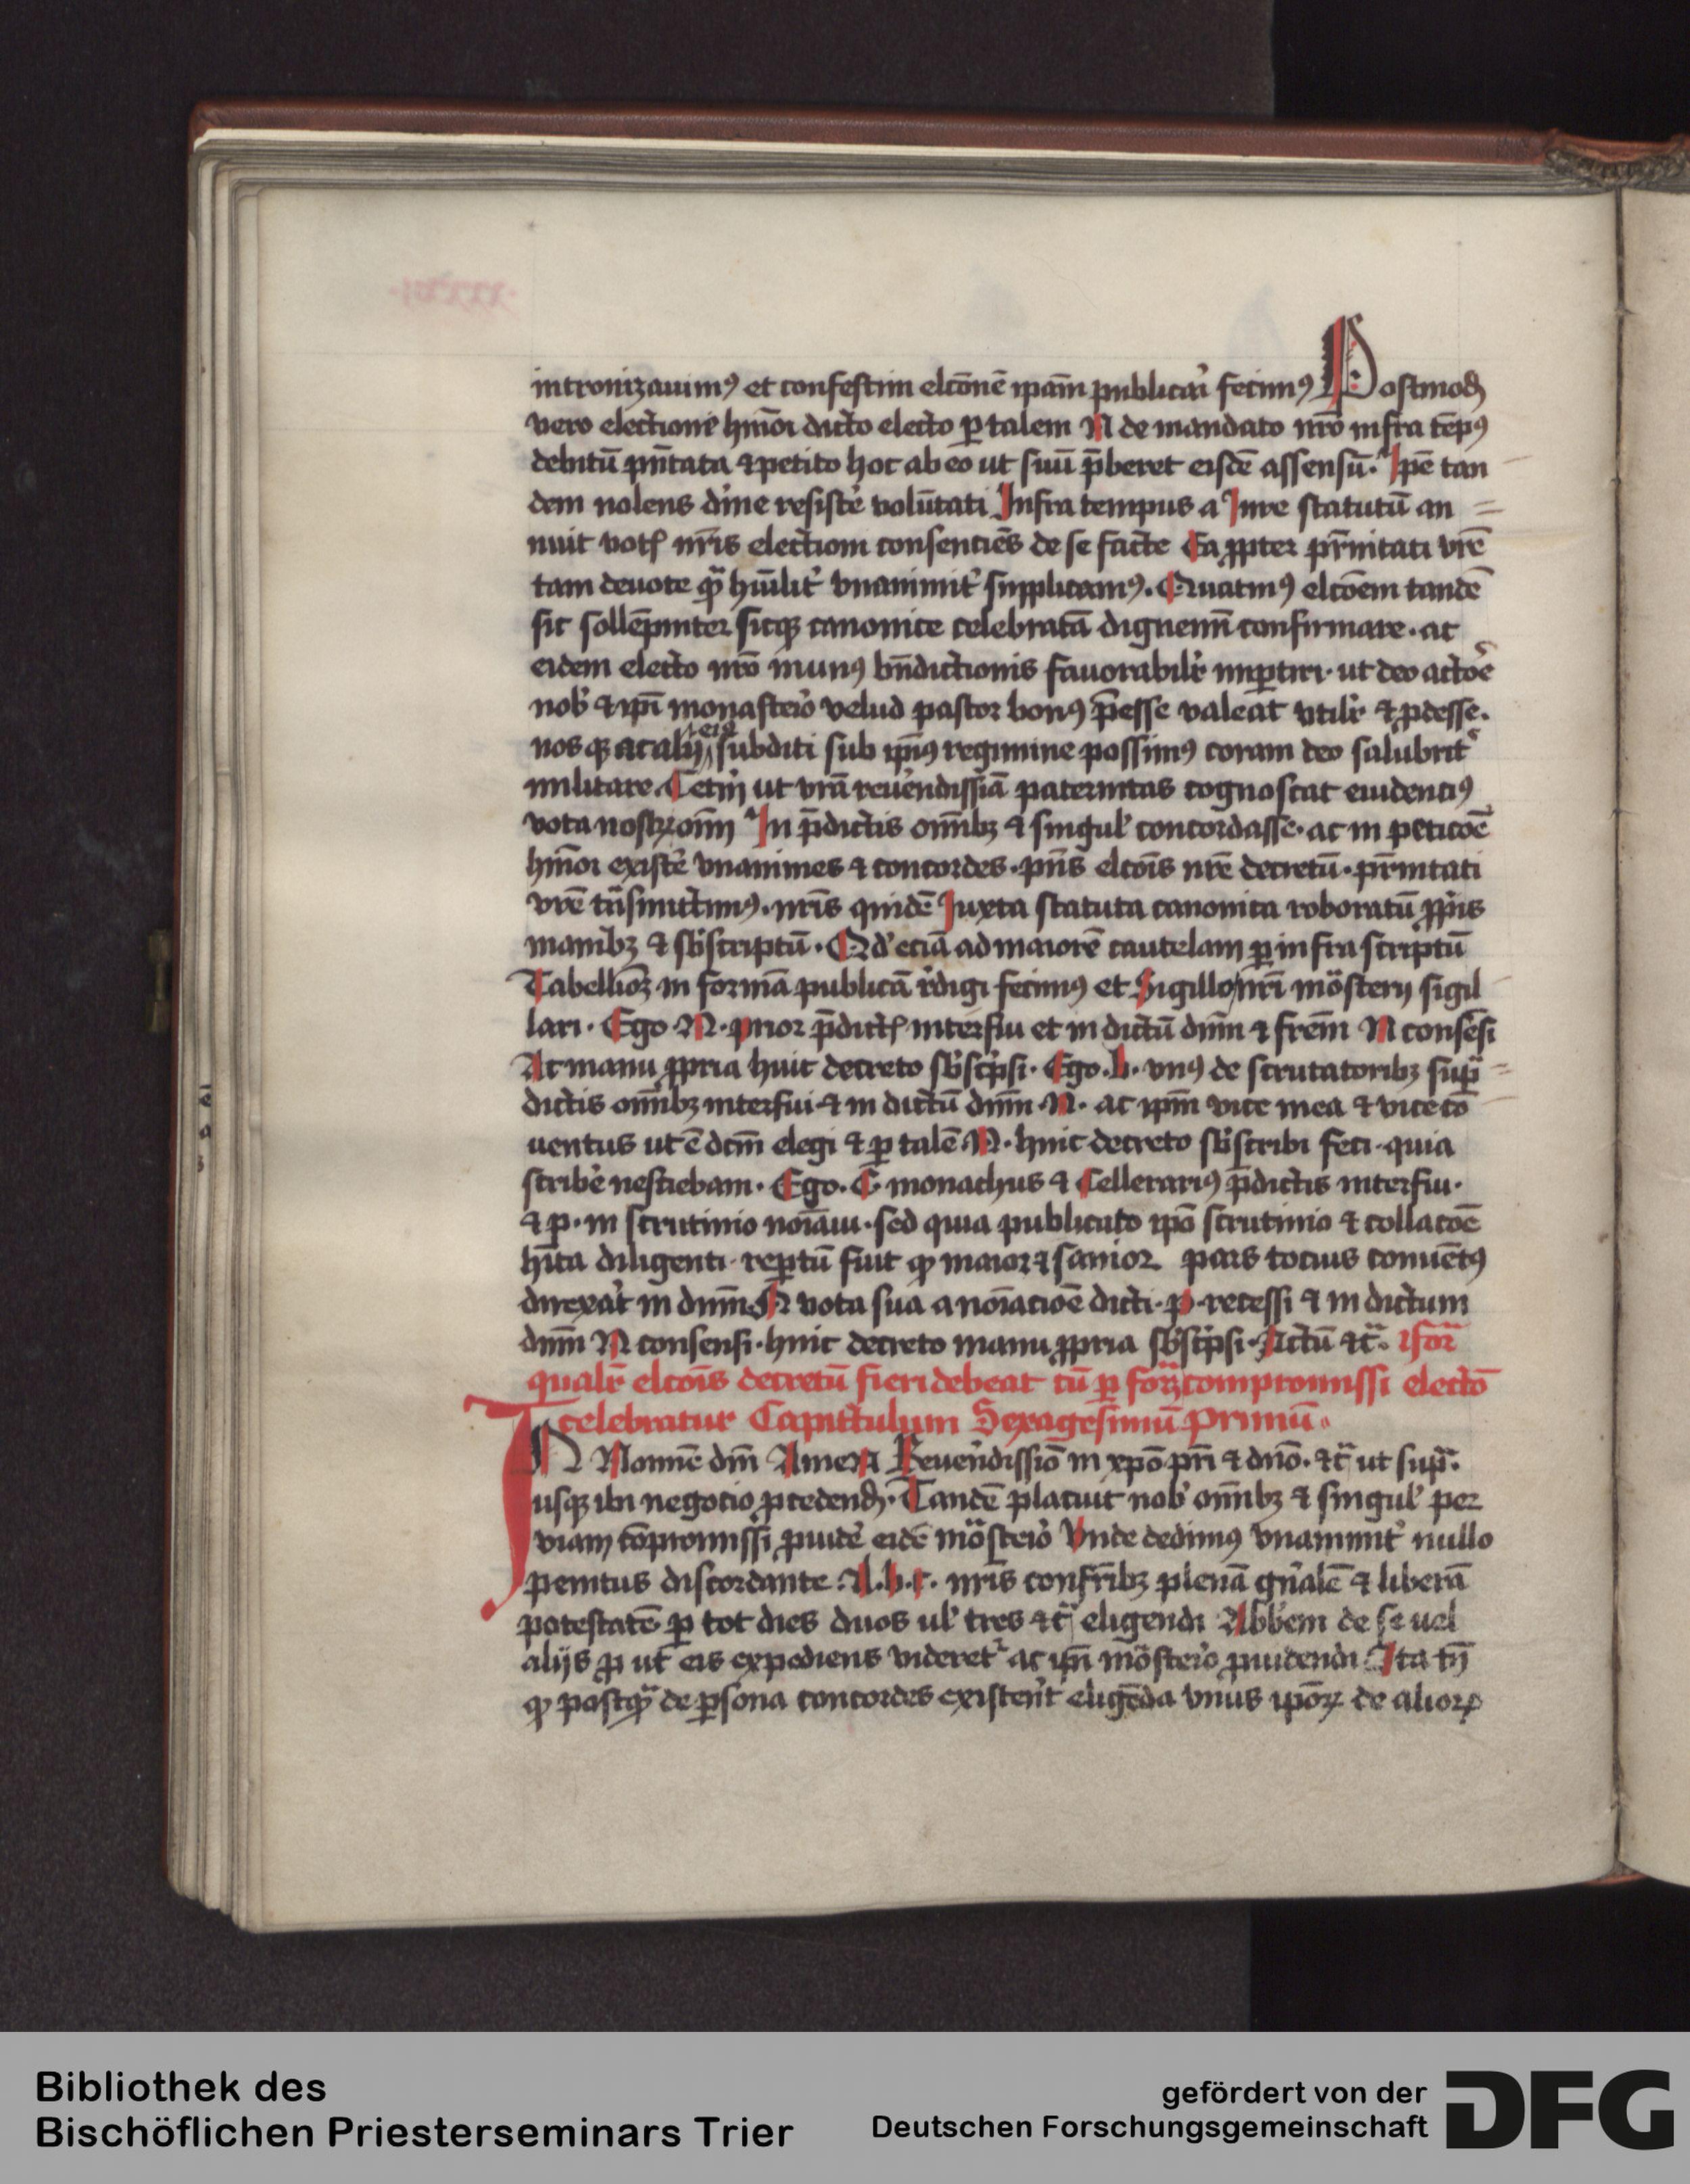 intronizauimꝯ et confestim elcōnē ip̄am publicari fecimꝯ Postmodū
vero electione hm̄oi dicto electo ꝑ talem N de mandato nr̄o infra tēpꝯ
debitū p̄n̄tata ⁊ petito hoc ab eo ut suū p̄beret eisdē assensū. Ip̄e tan
dem nolens diīne resistē volūtati Infra tempus a Iure statutū an
nuit votis nr̄is electioni consenciēs de se facte Ea ꝓpter pr̄nitati vr̄e
tam deuote q̄ hūilit̄ vnanimit̄ supplicamꝯ. Quatinꝯ elcōem tandē
sic sollēpniter sicqꝫ canonice celebratā dignemī confirmare. ac
eidem electo nr̄o munꝯ bn̄dictionis fauorabilr̄ imꝑtiri. ut deo actoē
nob̄ ⁊ ip̄i monasterio velud pastor bonꝯ p̄esse valeat vtilr̄ ⁊ ꝓdesse.
nos qꝫ ac alij eiꝯ subditi sub ip̄iꝯ regimine possimꝯ coram deo salubrit̄
militare. Cetīn ut vr̄a reuēndissīa paternitas cognoscat euidenciꝯ
vota nostrꝝ om̄i In p̄dictis om̄ibꝫ ⁊ singul̄ concordasse. ac in peticōē
hm̄oi existē vnanimes ⁊ concordes. pn̄s elcōis nr̄e decretū. pr̄nitati
vr̄e tn̄smittimꝯ. nr̄is quidē Iuxta statuta canonica roboratū ꝓpiis
manibꝫ ⁊ sb̄scriptū. Qd̄ eciā ad maiorē cautelam ꝑ infra scriptū
Tabellioꝫ in formā publicā r̄digi fecimꝯ et Sigillo nr̄i mōsterij sigil
lari. Ego .N. prior p̄dictis interfui et in dictū dn̄m ⁊ fr̄em N consēsi
Ac manu ꝓpria huic decreto sb̄sc̄psi. Ego .b. vnꝯ de scrutatoribꝫ sup̄
dictis om̄ibꝫ interfui ⁊ in dictū dn̄m .N. ac ip̄m vice mea ⁊ vice cō
uentus ut ē dcm̄ elegi ⁊ ꝑ talē .N. huic decreto sb̄scribi feci. quia
scribē nesciebam. Ego .C. monachus ⁊ Cellerariꝯ p̄dictis interfui.
⁊ p. in scrutinio noīaui. sed quia publicato ip̄o scrutinio ⁊ collacōē
hīta diligenti. reꝑtū fuit ꝙ maior ⁊ sanior pars tocius conuētꝯ
direxāt in dn̄m N vota sua a noīaciōē dicti. p. recessi ⁊ in dictum
dn̄m N consensi. huic decreto manu ꝓpria sb̄sc̄psi. Actū ⁊c̄.
qualr̄ elcōis decretū fieri debeat cū ꝑ forꝫ compromissi electō
celebratur Capittulum Sexagesimū primū.
IN Nomīe dn̄i Amen Reuēndissīo in xp̄o pr̄i ⁊ dn̄o. ⁊c̄ ut sup̄.
usqꝫ ibi negocio ꝓcedendū. Tandē placuit nob̄ om̄ibꝫ ⁊ singul̄ per
viam cōpromissi ꝓuidē eidē mōsterio Vnde dedimꝯ vnanimit̄ nullo
penitus discordante .A.b.c. nr̄is confr̄ibꝫ plenā gn̄alē ⁊ liberā
potestatē ꝑ tot dies duos ul̄ tres ⁊c̄ eligendi Abbem de se uel
alijs ꝓ ut eis expediens videret̄ ac ip̄i mōsterio ꝓuidendi Ita tn̄
ꝙ postq̄ de ꝑsona concordes existēt eligēda vnus ip̄oꝝ de alioꝝ
Bibliothek des
Bischöflichen Priesterseminars Trier
gefördert von der
Deutschen Forschungsgemeinschaft
DFG